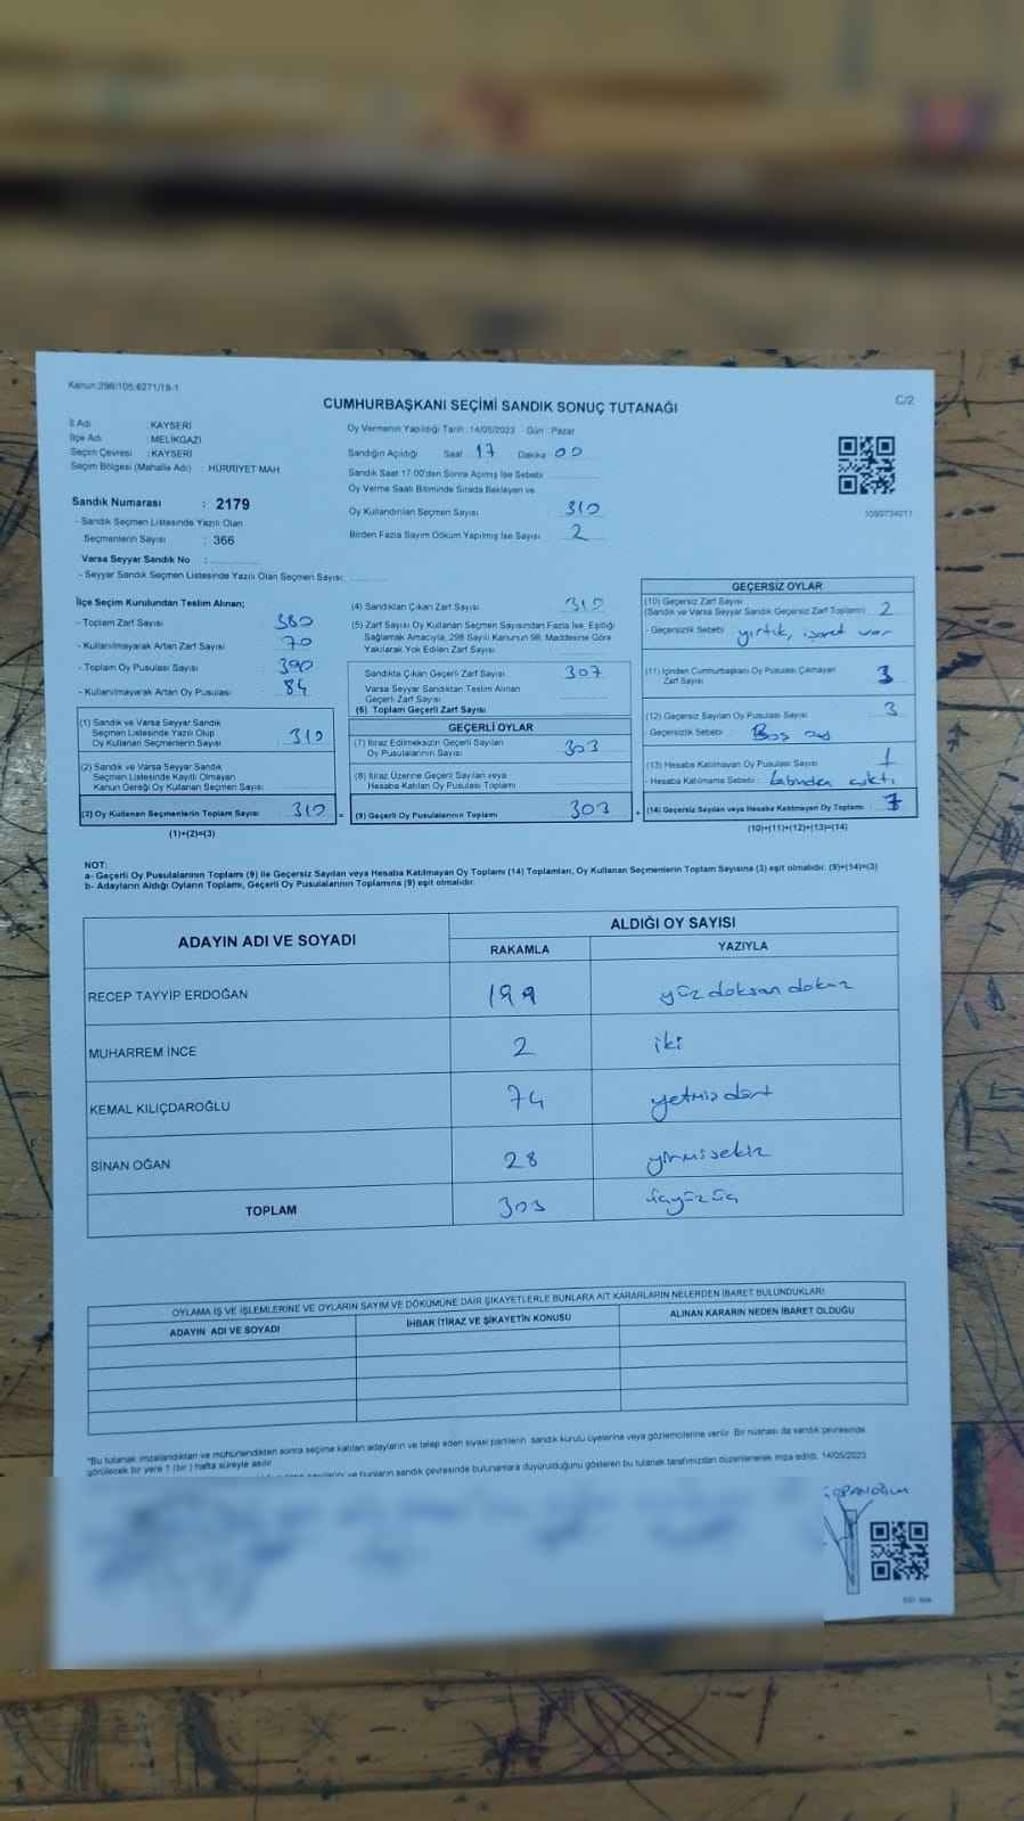 Kanun:298/105,6271/19-1
C/2
CUMHURBAŞKANI SEÇİMİ SANDIK SONUÇ TUTANAĞI
İl Adı : KAYSERİ
İlçe Adı : MELİKGAZİ
Seçim Çevresi : KAYSERİ
Seçim Bölgesi (Mahalle Adı) : HÜRRİYET MAH
Sandık Numarası : 2179
- Sandık Seçmen Listesinde Yazılı Olan
Seçmenlerin Sayısı : 366
Varsa Seyyar Sandık No :
- Seyyar Sandık Seçmen Listesinde Yazılı Olan Seçmen Sayısı:
Oy Vermenin Yapıldığı Tarih : 14/05/2023 Gün : Pazar
Sandığın Açıldığı Saat 17 Dakika 00
Sandık Saat 17.00'den Sonra Açılmış İse Sebebi
Oy Verme Saati Bitiminde Sırada Bekleyen ve
Oy Kullandırılan Seçmen Sayısı 310
Birden Fazla Sayım Döküm Yapılmış İse Sayısı 2
İlçe Seçim Kurulundan Teslim Alınan;
- Toplam Zarf Sayısı 380
- Kullanılmayarak Artan Zarf Sayısı 70
- Toplam Oy Pusulası Sayısı 390
- Kullanılmayarak Artan Oy Pusulası 84
(1) Sandık ve Varsa Seyyar Sandık
Seçmen Listesinde Yazılı Olup
Oy Kullanan Seçmenlerin Sayısı 310
(2) Sandık ve Varsa Seyyar Sandık
Seçmen Listesinde Kayıtlı Olmayan
Kanun Gereği Oy Kullanan Seçmen Sayısı
(3) Oy Kullanan Seçmenlerin Toplam Sayısı 310 =
(1)+(2)=(3)
(4) Sandıktan Çıkan Zarf Sayısı 310
(5) Zarf Sayısı Oy Kullanan Seçmen Sayısından Fazla İse, Eşitliği
Sağlamak Amacıyla, 298 Sayılı Kanunun 98. Maddesine Göre
Yakılarak Yok Edilen Zarf Sayısı
Sandıkta Çıkan Geçerli Zarf Sayısı 307
Varsa Seyyar Sandıktan Teslim Alınan
Geçerli Zarf Sayısı
(6) Toplam Geçerli Zarf Sayısı
GEÇERLİ OYLAR
(7) İtiraz Edilmeksizin Geçerli Sayılan
Oy Pusulalarının Sayısı 303
(8) İtiraz Üzerine Geçerli Sayılan veya
Hesaba Katılan Oy Pusulası Toplamı
(9) Geçerli Oy Pusulalarının Toplamı 303 +
GEÇERSİZ OYLAR
(10) Geçersiz Zarf Sayısı
(Sandık ve Varsa Seyyar Sandık Geçersiz Zarf Toplamı) 2
- Geçersizlik Sebebi yırtık, işaret var
(11) İçinden Cumhurbaşkanı Oy Pusulası Çıkmayan
Zarf Sayısı 3
(12) Geçersiz Sayılan Oy Pusulası Sayısı 3
Geçersizlik Sebebi Boş oy
(13) Hesaba Katılmayan Oy Pusulası Sayısı 1
- Hesaba Katılmama Sebebi kabinden çıktı
(14) Geçersiz Sayılan veya Hesaba Katılmayan Oy Toplamı 7
(10)+(11)+(12)+(13)=(14)
NOT:
a- Geçerli Oy Pusulalarının Toplamı (9) ile Geçersiz Sayılan veya Hesaba Katılmayan Oy Toplamı (14) Toplamları, Oy Kullanan Seçmenlerin Toplam Sayısına (3) eşit olmalıdır. (9)+(14)=(3)
b- Adayların Aldığı Oyların Toplamı, Geçerli Oy Pusulalarının Toplamına (9) eşit olmalıdır.
ADAYIN ADI VE SOYADI ALDIĞI OY SAYISI
RAKAMLA YAZIYLA
RECEP TAYYİP ERDOĞAN 199 yüz doksan dokuz
MUHARREM İNCE 2 iki
KEMAL KILIÇDAROĞLU 74 yetmiş dört
SİNAN OĞAN 28 yirmi sekiz
TOPLAM 303 üçyüzüç
OYLAMA İŞ VE İŞLEMLERİNE VE OYLARIN SAYIM VE DÖKÜMÜNE DAİR ŞİKAYETLERLE BUNLARA AİT KARARLARIN NELERDEN İBARET BULUNDUKLARI
ADAYIN ADI VE SOYADI İHBAR İTİRAZ VE ŞİKAYETİN KONUSU ALINAN KARARIN NEDEN İBARET OLDUĞU
"Bu tutanak imzalandıktan ve mühürlendikten sonra seçime katılan adayların ve talep eden siyasi partilerin sandık kurulu üyelerine veya gözlemcilerine verilir. Bir nüshası da sandık çevresinde
görülecek bir yere 1 (bir) hafta süreyle asılır.
sandık çevresinde bulunanlara duyurulduğunu gösteren bu tutanak tarafımızdan düzenlenerek imza edildi. 14/05/2023